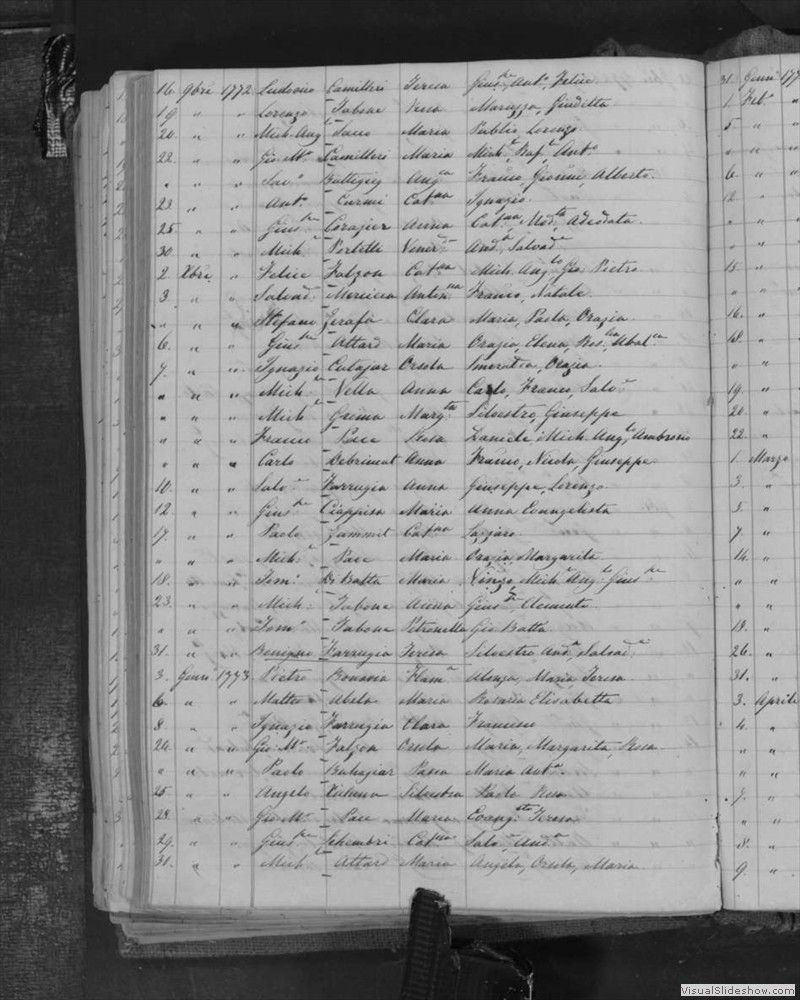 16. 9bri 1772 Ludovico Camilleri Teresa Gius.pe Ant.o Felice
19. " " Lorenzo Tabone Rosa Maruzza, Giuditta
20. " " Mich. Ang. Sacco Maria Publio, Lorenzo
22. " " Gio M.a Camilleri Maria Mich.e, Raf.e, Ant.o
" " " Sal.e Buttigieg Ang.ca Franco, Gionni, Alberto
23. " " Ant.o Curmi Cat.na Ignazio
25. " " Gius.pe Anna Cat.na, Mod.ta, Adeodata
30. " " Mich.e Portelli Vener.a And.a Salvad.e
2. Xbri " Felice Falzon Cat.na Mich. Ang.lo Gio. Pietro
3. " " Salvad.e Mercieca Anton.na Franco, Natale
" " " Stefano Zerafa Clara Maria, Paola, Orazia
6. " " Gius.pe Attard Maria Orazio, Elena, Ros.lia, Ubal.a
7. " " Ignazio Cutajar Orsola Orazia
" " " Mich.e Vella Anna Carlo, Franco, Salv.e
" " " Mich.e Grima Marg.ta Silvestro, Giuseppe
" " " Franco Pace Rosa Daniele Mich. Ang.lo Ambrosio
" " " Carlo Debrincat Anna Franco, Nicola, Giuseppe
10. " " Salv.e Farrugia Anna Giuseppe, Lorenzo
12. " " Gius.pe Maria Anna Evangelista
17. " " Paolo Zammit Cat.na Lazzaro
" " " Mich.e Pace Maria Orazia, Margarita
18. " " Tom.o Di Batta Maria Mich.e Ang.lo Gius.pe
23. " " Mich.e Tabone Anna Gius.pe, Clemente
" " " Tom.o Tabone Petronella Gio Batta
31. " " Benigno Farrugia Teresa Silvestro And.a, Salvad.e
3. Genri 1773 Pietro Bonavia Flam.a Aloysa, Maria Teresa
6. " " Matteo Abela Maria Rosaria Elisabetta
8. " " Ignazio Farrugia Clara Francesco
20. " " Gio M.a Falzon Orsola Maria, Margarita, Rosa
" " " Paolo Buhagiar Pasca Maria Ant.a
25. " " Angelo Xuereb Silvestra Paolo Rosa
28. " " Gio M.a Pace Maria Evang.sta Teresa
29. " " Gius.pe Schembri Cat.na Salv.e And.a
31. " " Mich.e Attard Maria Angela, Orsola, Maria
31. Genri 177
1. Feb.o "
5 " "
" " "
6. " "
12. " "
" "
" "
15. " "
" "
16. "
18. "
" "
19. "
20. "
22. "
1. Marzo
3. "
5. "
7. "
14. "
" "
" "
18. "
26. "
31. "
3. Aprile
4. "
" "
" "
7. "
" "
8. "
9. "
VisualSlideshow.com